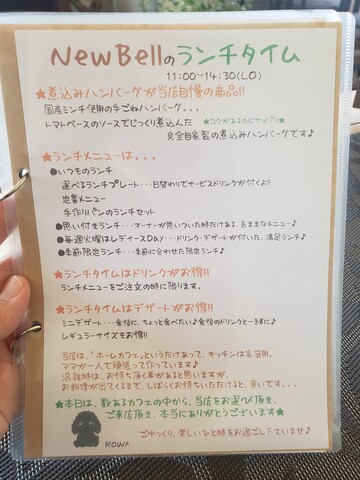 NewBellのランチタイム
11:00〜14:30(LO)
★煮込みハンバーグが当店自慢の商品!!
国産ミンチ使用の手ごねハンバーグ...
トマトベースのソースでじっくり煮込んだ ★コクがあるのにサッパリ★
完全自家製の煮込みハンバーグです♪
★ランチメニューは...
●いつものランチ
選べるランチプレート...日替わりでサービスドリンクが付くよ!!
定番メニュー
手作りパンのランチセット
●思い付きランチ...マーナーが思いついた時だけある、気ままなメニュー♪
●毎週火曜はレディースDay...ドリンク・デザートが付いた、満足ランチ♪
●季節限定ランチ...季節に合わせた限定ランチ♪
★ランチタイムはドリンクがお得!!
ランチメニューをご注文の時に限ります。
★ランチタイムはデザートがお得!!
ミニデザート...食後に、ちょっと食べたい♪食後のドリンクと一緒に♪
レギュラーサイズもお得!!
当店は、「ホームカフェ」というだけあって、キッチンは家庭用。
ママが一人で頑張って作っています♪
混雑時は、お待ち頂く事があると思いますが、
お料理が出てくるまで、しばらくお待ちいただけると、幸いです...
★本日は、数あるカフェの中から、当店をお選び頂き、
ご来店頂き、本当にありがとうございます★
ROWA
ごゆっくり、楽しいひと時をお過ごし下さいませ♪